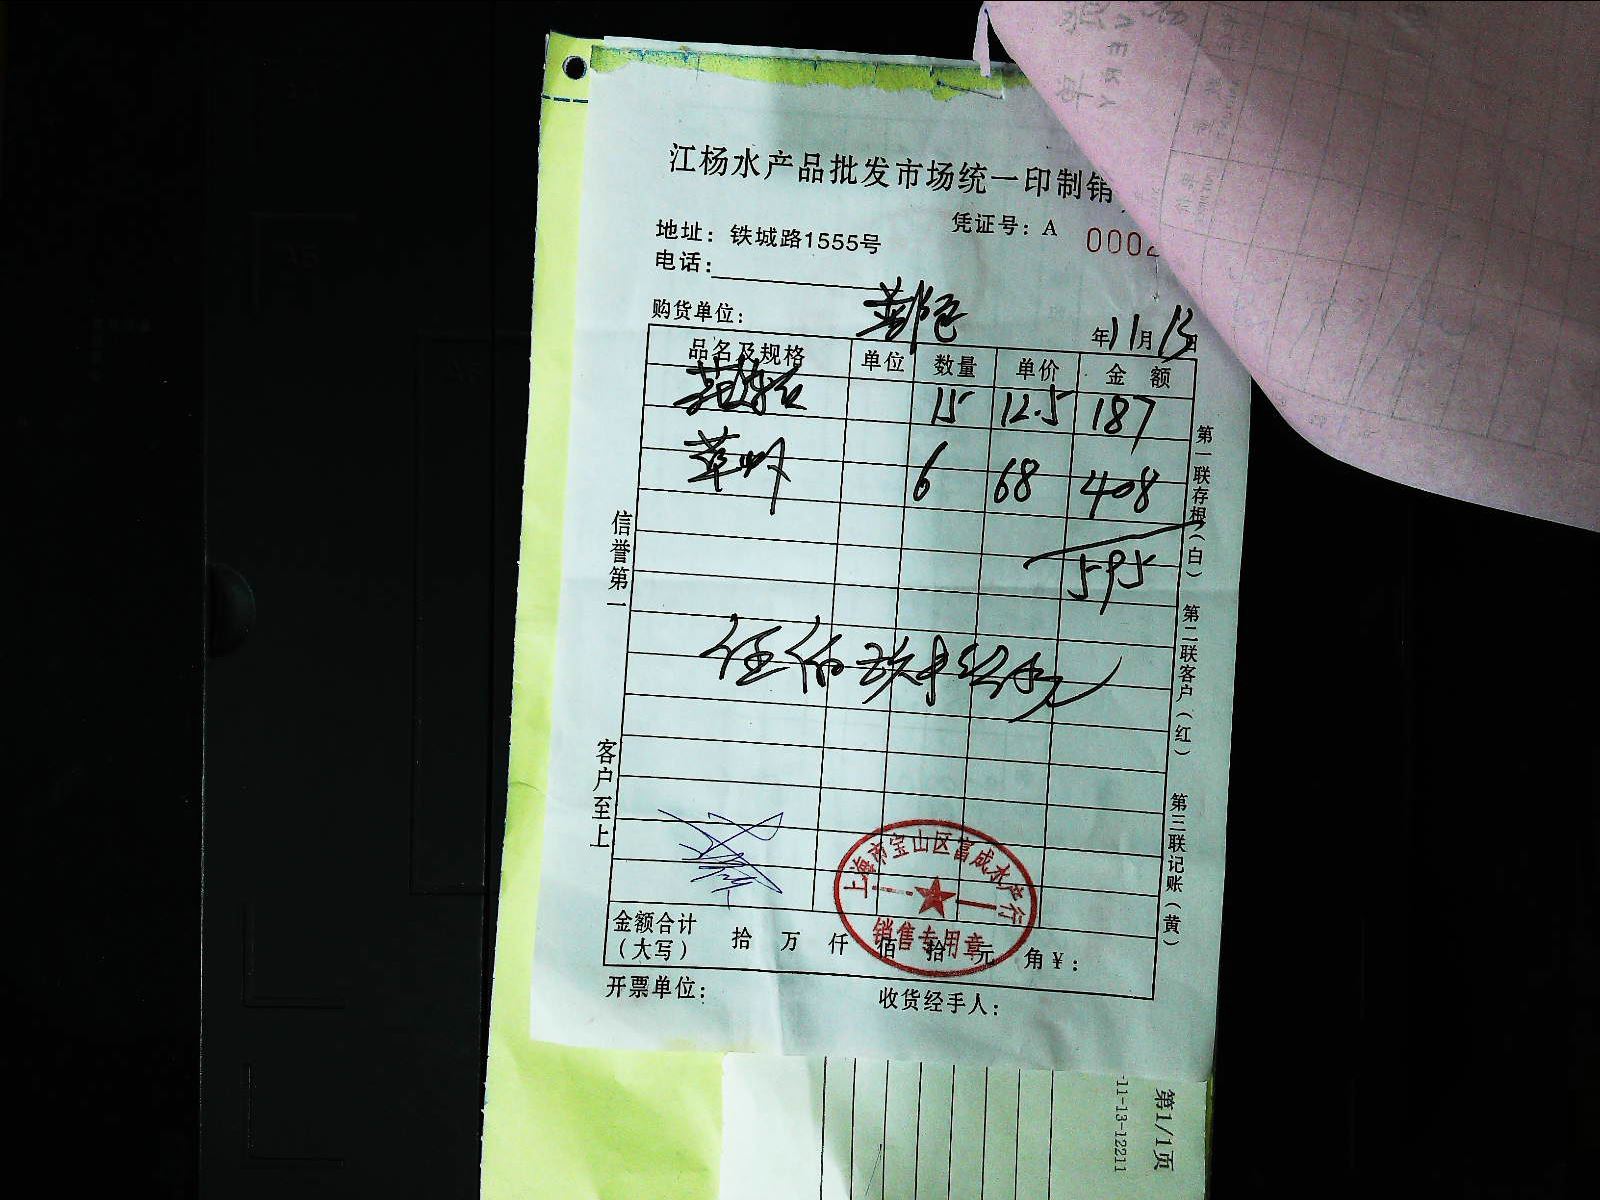 江杨水产品批发市场统一印制销
凭证号：A 0002
地址：铁城路1555号
电话：
购货单位：
年11月13日
品名及规格 单位 数量 单价 金额
15 12.5 187
草虾 6 68 408
595
信誉第一
客户至上
第一联存根（白） 第二联客户（红） 第三联记账（黄）
上海市宝山区富成水产行
销售专用章
金额合计（大写） 拾 万 仟 佰 拾 元 角 ¥：
开票单位： 收货经手人：
第1/1页
-11-13-12211